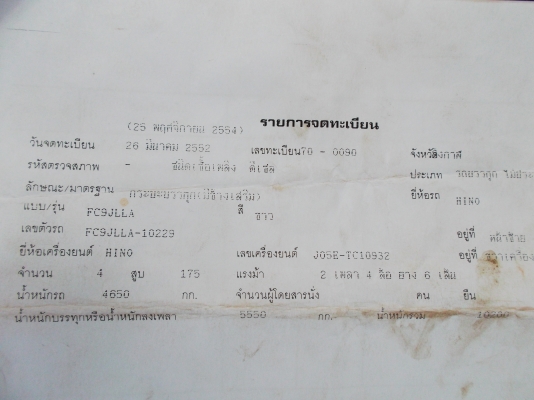 (25 พฤศจิกายน 2554) รายการจดทะเบียน
วันจดทะเบียน 26 มีนาคม 2552 เลขทะเบียน 70 - 0090 จังหวัด
รหัสตรวจสภาพ - ชนิดเชื้อเพลิง ดีเซล ประเภท
ลักษณะ/มาตรฐาน กระบะบรรทุก(มีข้างเสริม) ยี่ห้อรถ HINO
แบบ/รุ่น FC9JLLA สี ขาว
เลขตัวรถ FC9JLLA-10229 อยู่ที่
ยี่ห้อเครื่องยนต์ HINO เลขเครื่องยนต์ J05E-TC10932 อยู่ที่
จำนวน 4 สูบ 175 แรงม้า 2 เพลา 4 ล้อ ยาง 6 เส้น
น้ำหนักรถ 4650 กก. จำนวนผู้โดยสารนั่ง คน ยืน
น้ำหนักบรรทุกหรือน้ำหนักลงเพลา 5550 กก. น้ำหนักรวม 10200